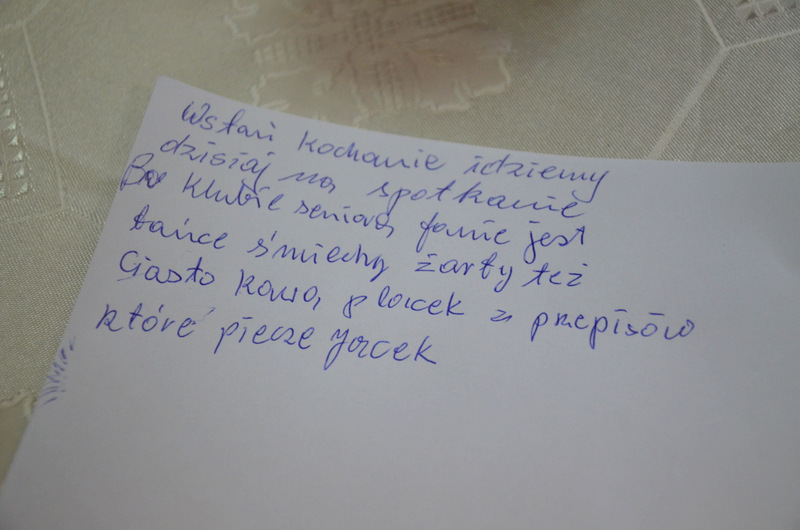 Wstań kochanie idziemy
dzisiaj na spotkanie
Bo klubie seniora, fanie jest
tańce śmiechy żarty też
Ciasto kawa, placek z przepisów
które piecze Jacek